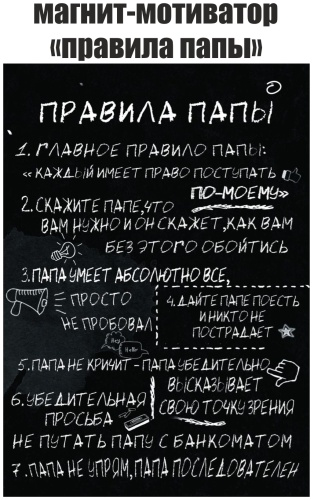 магнит-мотиватор
«правила папы»
ПРАВИЛА ПАПЫ
1. ГЛАВНОЕ ПРАВИЛО ПАПЫ:
«КАЖДЫЙ ИМЕЕТ ПРАВО ПОСТУПАТЬ
ПО-МОЕМУ»
2. СКАЖИТЕ ПАПЕ, ЧТО
ВАМ НУЖНО И ОН СКАЖЕТ, КАК ВАМ
БЕЗ ЭТОГО ОБОЙТИСЬ
3. ПАПА УМЕЕТ АБСОЛЮТНО ВСЕ,
ПРОСТО
НЕ ПРОБОВАЛ
4. ДАЙТЕ ПАПЕ ПОЕСТЬ
И НИКТО НЕ
ПОСТРАДАЕТ
Hey
Hello
5. ПАПА НЕ КРИЧИТ - ПАПА УБЕДИТЕЛЬНО
ВЫСКАЗЫВАЕТ
СВОЮ ТОЧКУ ЗРЕНИЯ
6. УБЕДИТЕЛЬНАЯ
ПРОСЬБА
НЕ ПУТАТЬ ПАПУ С БАНКОМАТОМ
7. ПАПА НЕ УПРЯМ, ПАПА ПОСЛЕДОВАТЕЛЕН